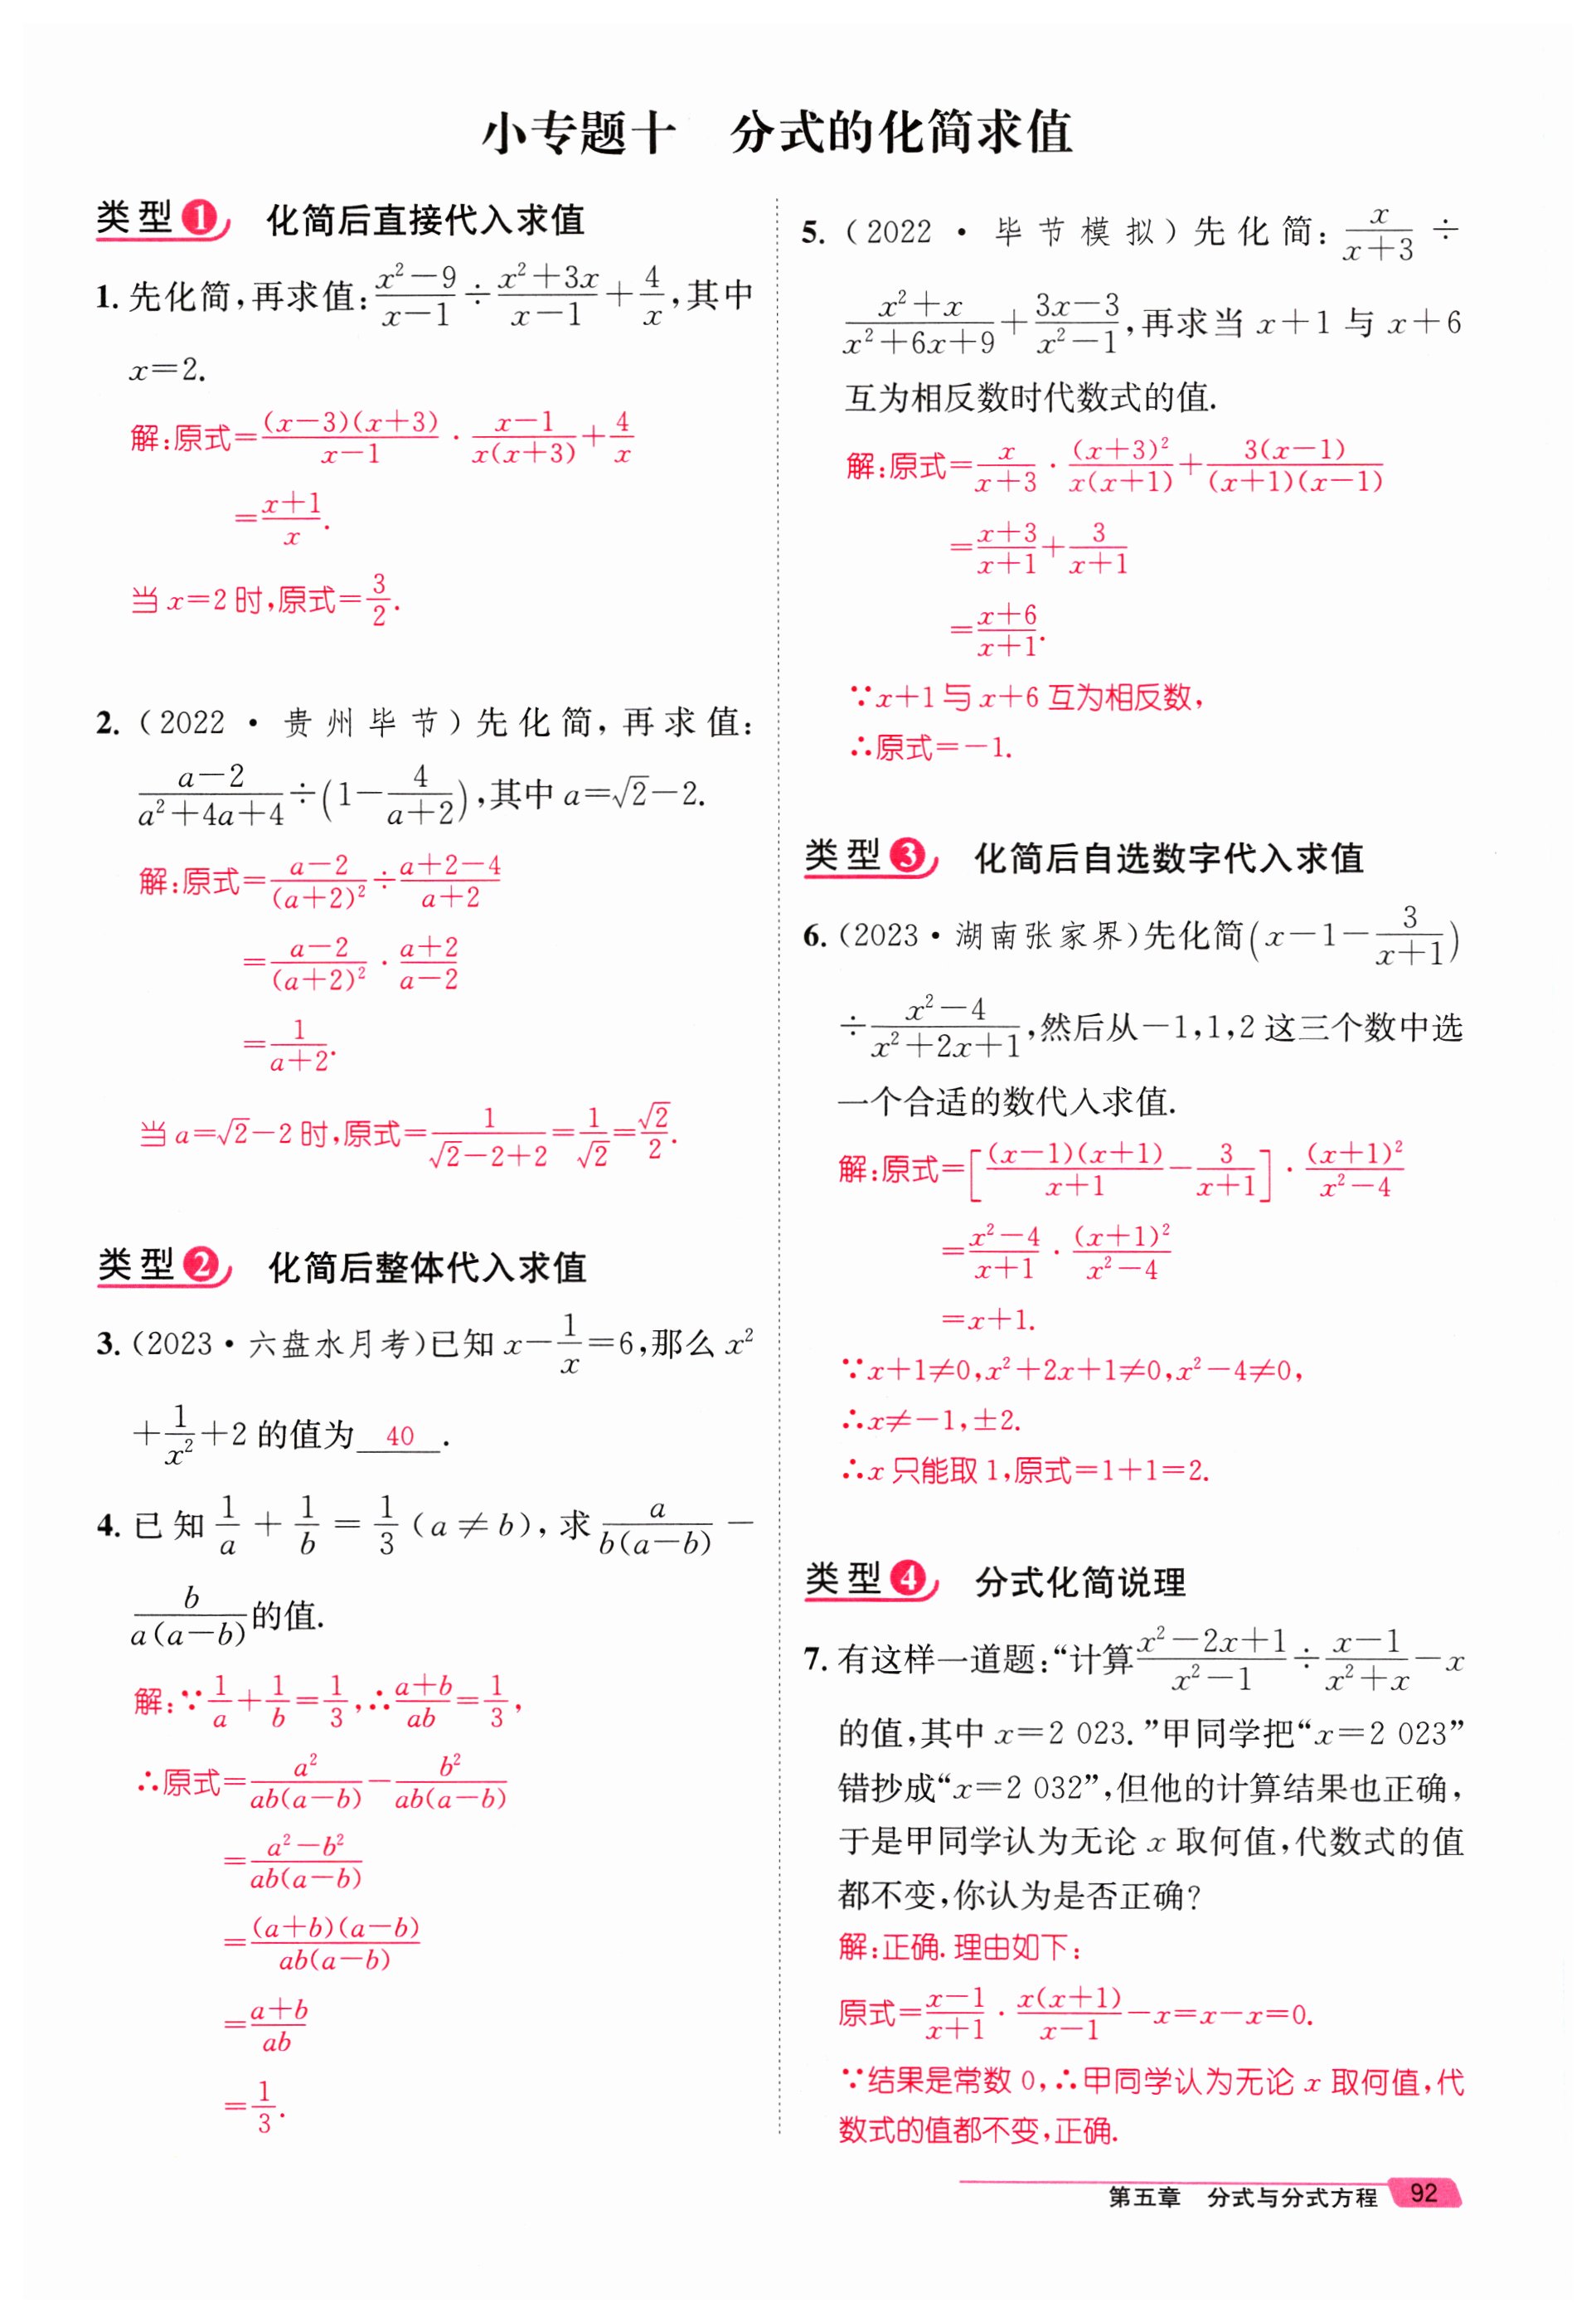 小专题十　分式的化简求值
类型❶　化简后直接代入求值
1. 先化简,再求值:$\frac{x^2-9}{x-1}÷\frac{x^2+3x}{x-1}+\frac{4}{x}$,其中
x=2.
解:原式=$\frac{(x-3)(x+3)}{x-1}·\frac{x-1}{x(x+3)}+\frac{4}{x}$
=$\frac{x+1}{x}$.
当 x=2 时,原式=$\frac{3}{2}$.
2. (2022 · 贵州毕节)先化简,再求值:
$\frac{a-2}{a^2+4a+4}÷(1-\frac{4}{a+2})$,其中 a=$\sqrt{2}$-2.
解:原式=$\frac{a-2}{(a+2)^2}÷\frac{a+2-4}{a+2}$
=$\frac{a-2}{(a+2)^2}·\frac{a+2}{a-2}$
=$\frac{1}{a+2}$.
当 a=$\sqrt{2}$-2 时,原式=$\frac{1}{\sqrt{2}-2+2}=\frac{1}{\sqrt{2}}=\frac{\sqrt{2}}{2}$.
类型❷　化简后整体代入求值
3. (2023 · 六盘水月考)已知 $x-\frac{1}{x}=6$,那么 $x^2$
$+\frac{1}{x^2}+2$ 的值为 40 .
4. 已知 $\frac{1}{a}+\frac{1}{b}=\frac{1}{3}$(a≠b),求 $\frac{a}{b(a-b)}-$
$\frac{b}{a(a-b)}$的值.
解:∵$\frac{1}{a}+\frac{1}{b}=\frac{1}{3}$,∴$\frac{a+b}{ab}=\frac{1}{3}$,
∴原式=$\frac{a^2}{ab(a-b)}-\frac{b^2}{ab(a-b)}$
=$\frac{a^2-b^2}{ab(a-b)}$
=$\frac{(a+b)(a-b)}{ab(a-b)}$
=$\frac{a+b}{ab}$
=$\frac{1}{3}$.
5. (2022 · 毕节模拟)先化简:$\frac{x}{x+3}÷$
$\frac{x^2+x}{x^2+6x+9}+\frac{3x-3}{x^2-1}$,再求当 x+1 与 x+6
互为相反数时代数式的值.
解:原式=$\frac{x}{x+3}·\frac{(x+3)^2}{x(x+1)}+\frac{3(x-1)}{(x+1)(x-1)}$
=$\frac{x+3}{x+1}+\frac{3}{x+1}$
=$\frac{x+6}{x+1}$.
∵x+1 与 x+6 互为相反数,
∴原式=-1.
类型❸　化简后自选数字代入求值
6. (2023 · 湖南张家界)先化简$(x-1-\frac{3}{x+1})$
$÷\frac{x^2-4}{x^2+2x+1}$,然后从-1,1,2 这三个数中选
一个合适的数代入求值.
解:原式=$[\frac{(x-1)(x+1)}{x+1}-\frac{3}{x+1}]·\frac{(x+1)^2}{x^2-4}$
=$\frac{x^2-4}{x+1}·\frac{(x+1)^2}{x^2-4}$
=x+1.
∵x+1≠0,$x^2$+2x+1≠0,$x^2$-4≠0,
∴x≠-1,±2.
∴x 只能取 1,原式=1+1=2.
类型❹　分式化简说理
7. 有这样一道题:“计算$\frac{x^2-2x+1}{x^2-1}÷\frac{x-1}{x^2+x}-x$
的值,其中 x=2 023.”甲同学把“x=2 023”
错抄成“x=2 032”,但他的计算结果也正确,
于是甲同学认为无论 x 取何值,代数式的值
都不变,你认为是否正确?
解:正确.理由如下:
原式=$\frac{x-1}{x+1}·\frac{x(x+1)}{x-1}-x=x-x=0$.
∵结果是常数 0,∴甲同学认为无论 x 取何值,代
数式的值都不变,正确.
第五章　分式与分式方程 92